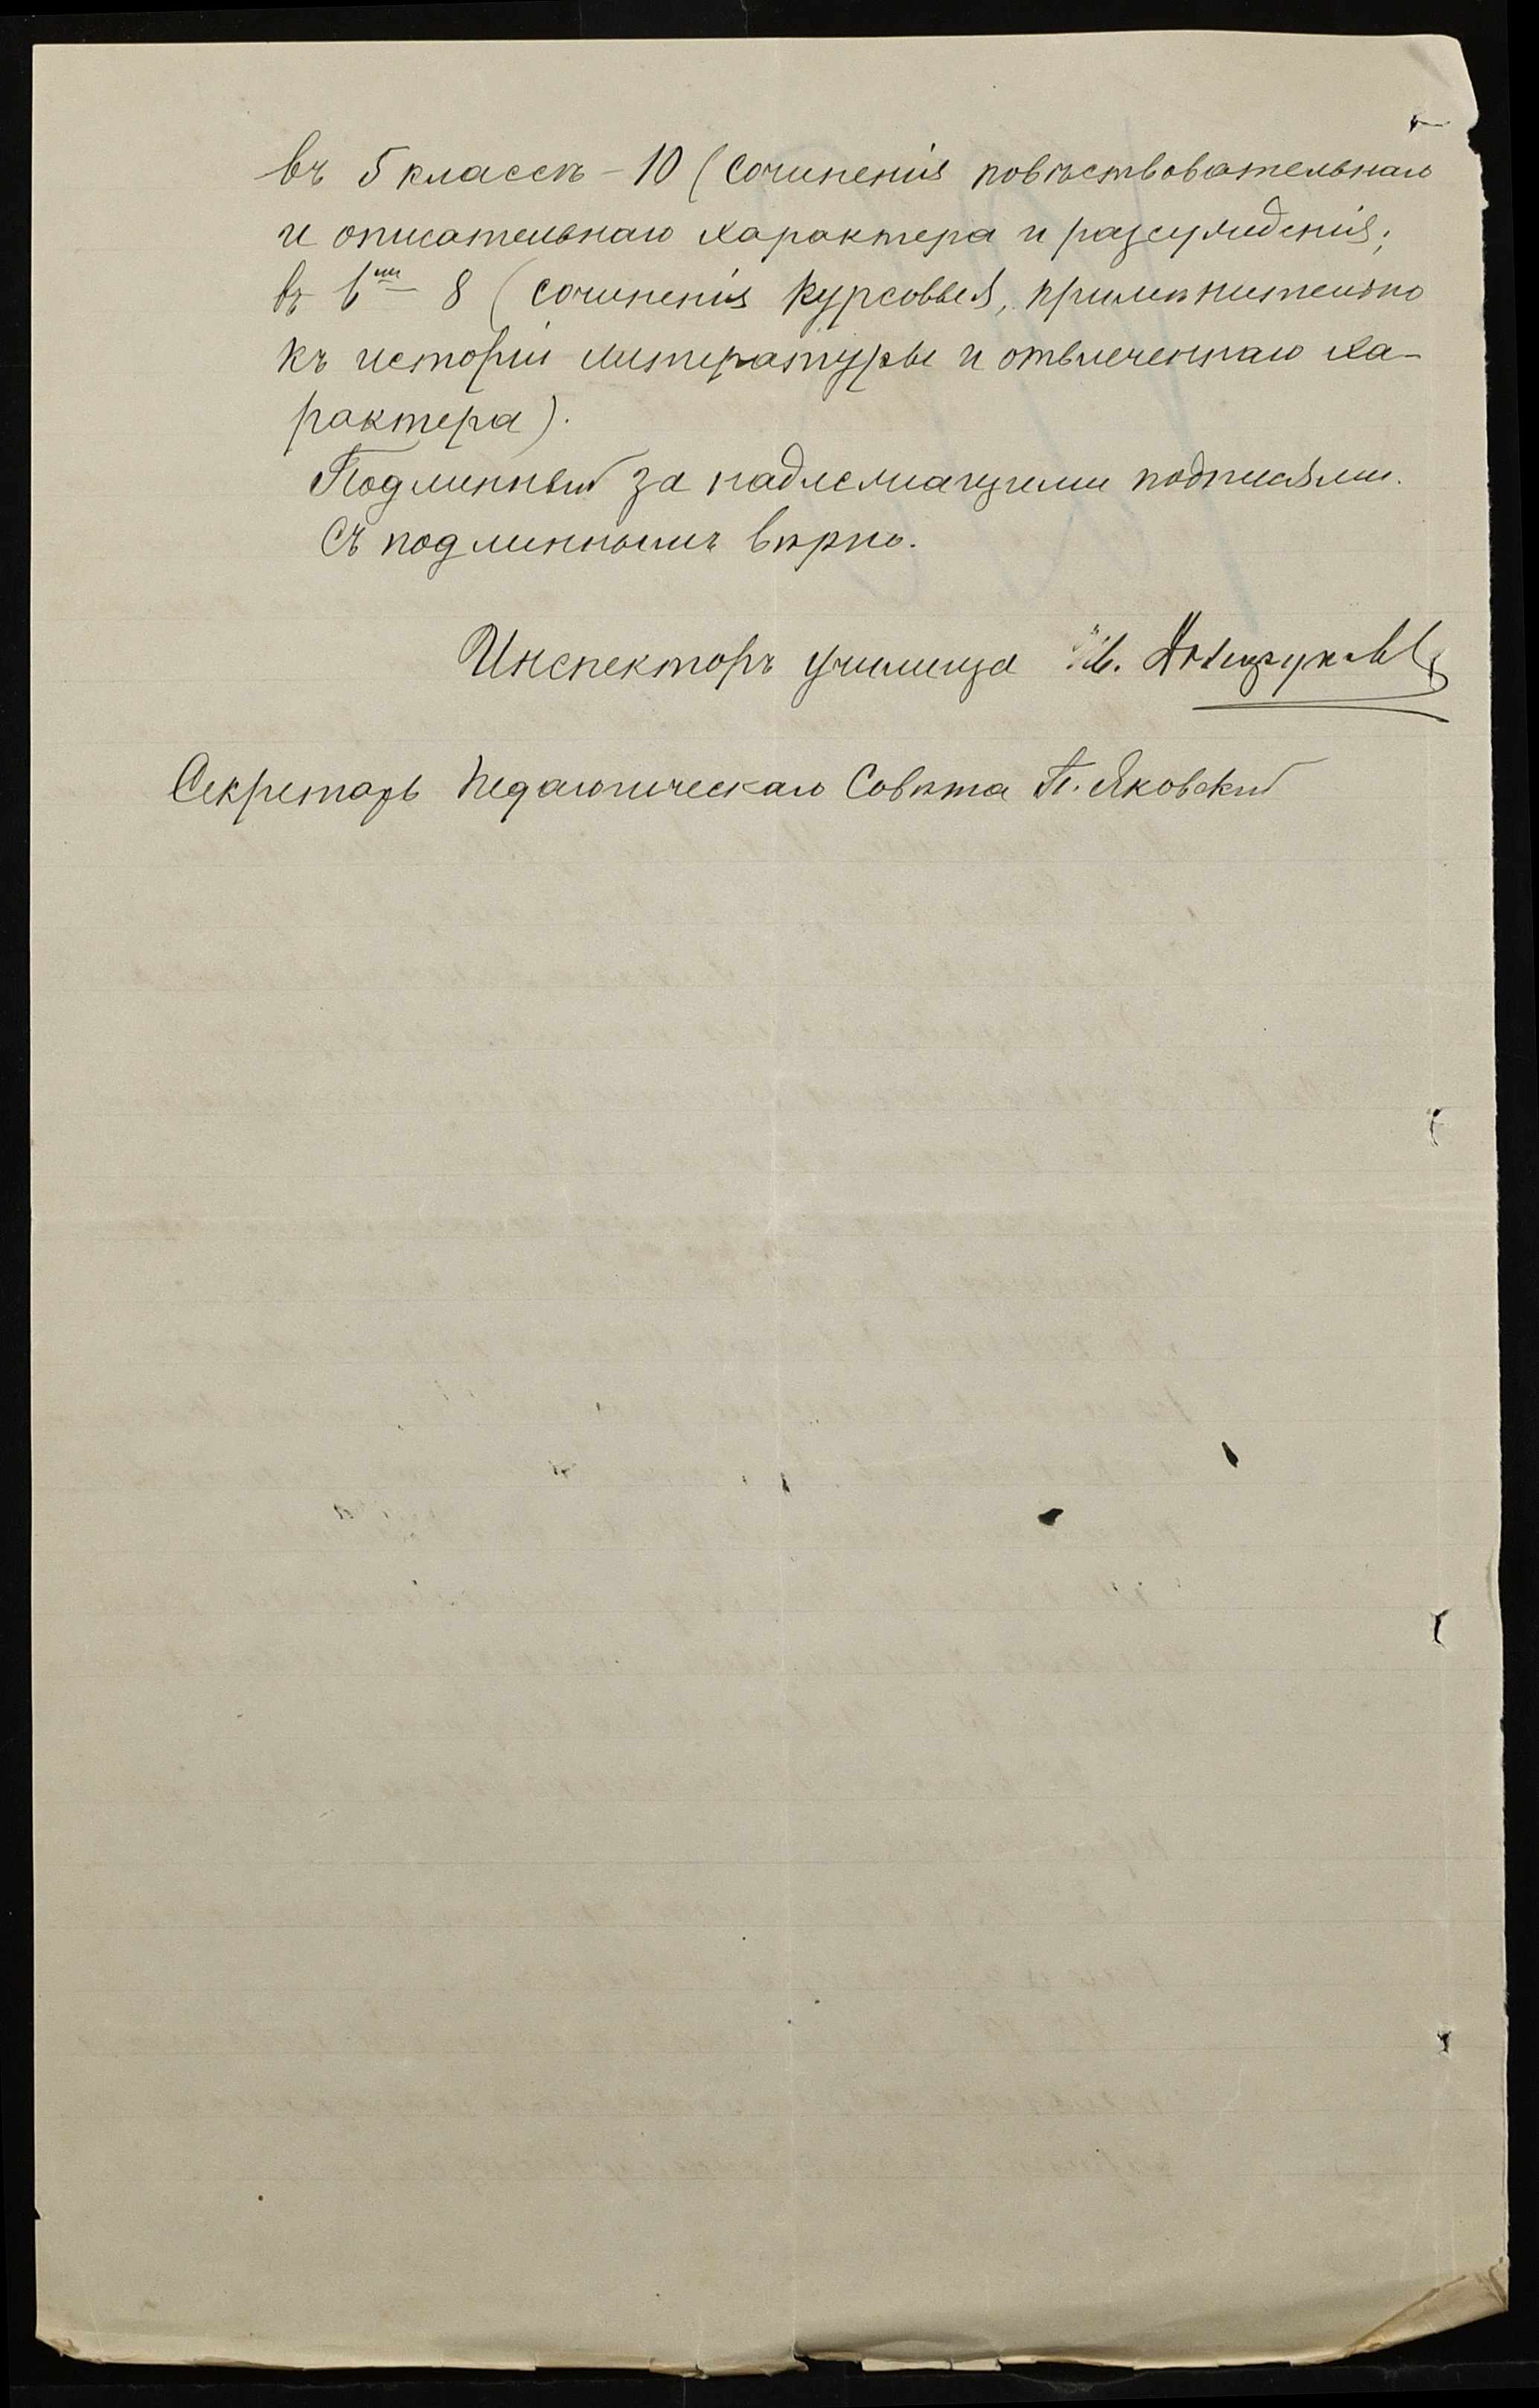 въ 5 классѣ – 10 (сочиненія повѣствовательнаго
и описательнаго характера и разсужденія;
въ 6мъ – 8 (сочиненія курсовыя, примѣнительно
къ исторіи литературы и отвлеченнаго ха-
рактера).
Подлинный за надлежащими подписями.
Съ подлиннымъ вѣрно.
Инспекторъ училища
Секретарь Педагогическаго Совѣта П. Яковскій